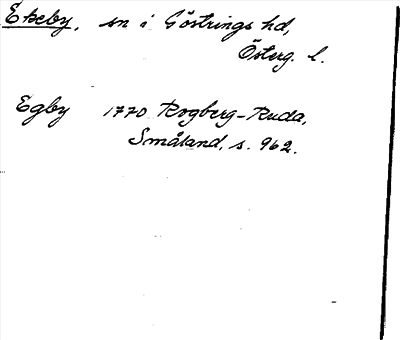 Ekeby, sn i Göstrings hd,
Österg. l.
Egby 1770 Rogberg-Ruda,
Småland, s. 962.